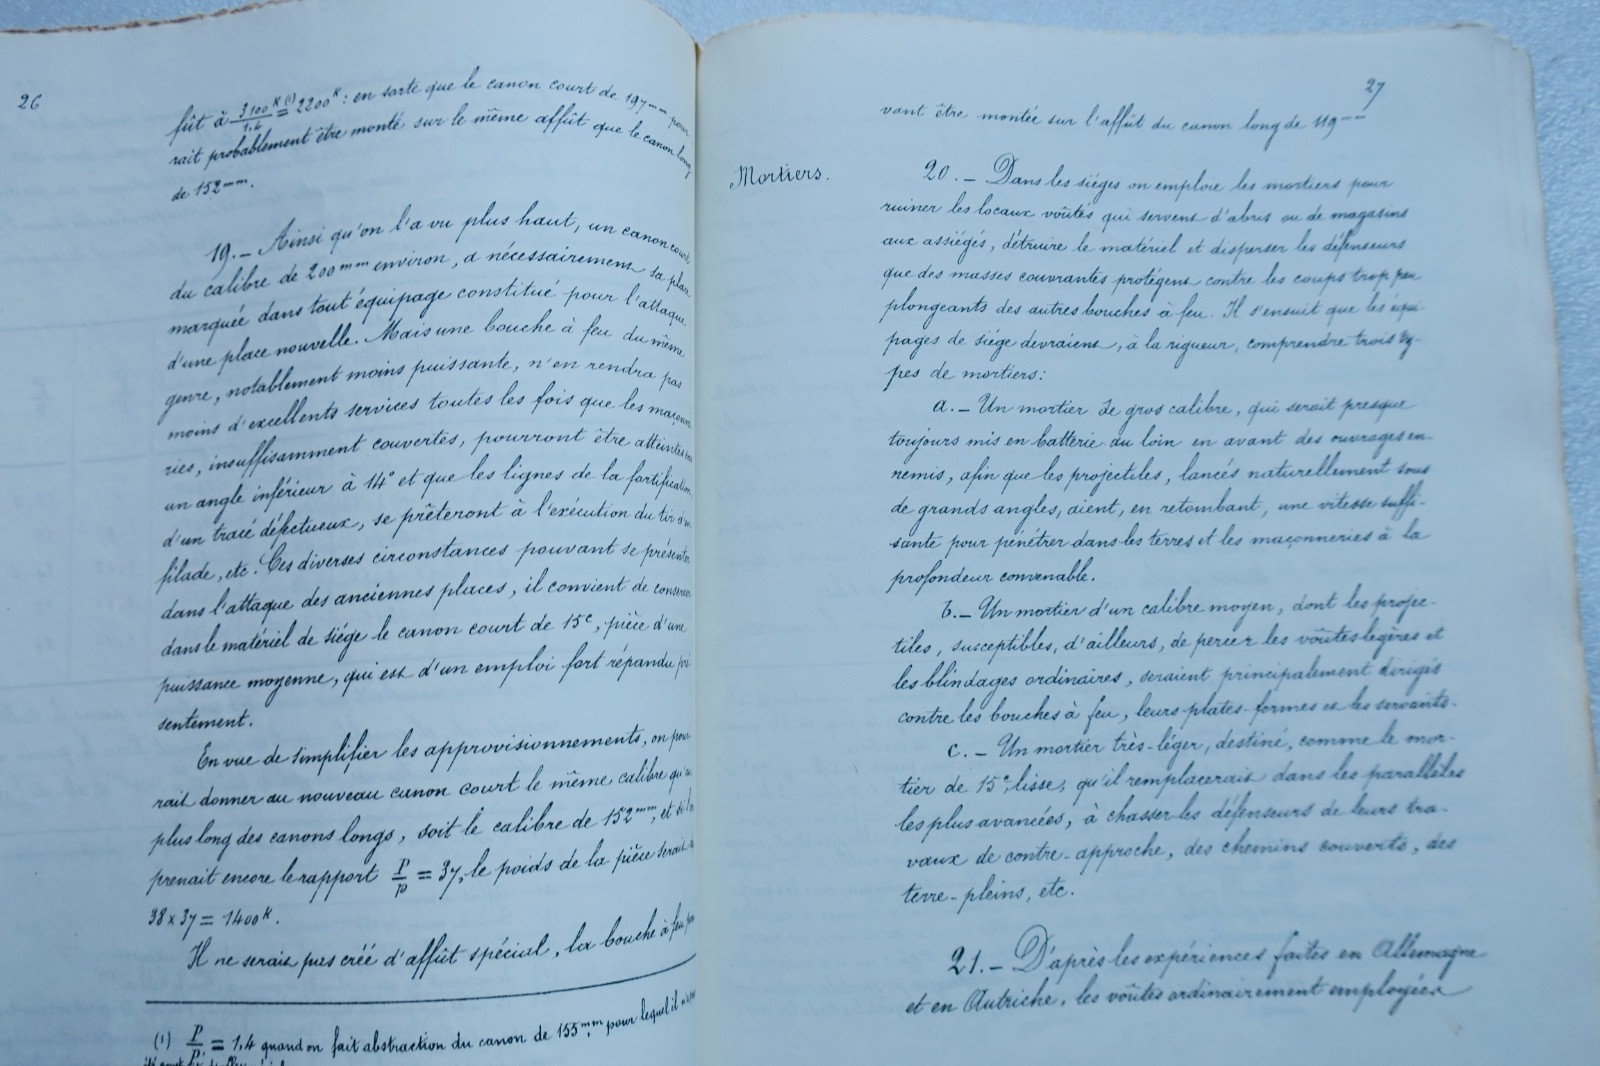 26
fût à 3100ᴷ/1.4 (1) = 2200ᴷ : en sorte que le canon court de 197ᵐᵐ pour
rait probablement être monté sur le même affût que le canon long
de 152ᵐᵐ.
19. — Ainsi qu'on l'a vu plus haut, un canon court
du calibre de 200ᵐᵐ environ, a nécessairement sa place
marquée dans tout équipage constitué pour l'attaque
d'une place nouvelle. Mais une bouche à feu du même
genre, notablement moins puissante, n'en rendra pas
moins d'excellents services toutes les fois que les maçonne
ries, insuffisamment couvertes, pourront être atteintes
un angle inférieur à 14° et que les lignes de la fortification
d'un tracé défectueux, se prêteront à l'exécution du tir d'en
filade, etc. Ces diverses circonstances pouvant se présenter
dans l'attaque des anciennes places, il convient de conserver
dans le matériel de siége le canon court de 15ᶜ, pièce d'une
puissance moyenne, qui est d'un emploi fort répandu pré
sentement.
En vue de simplifier les approvisionnements, on pour
rait donner au nouveau canon court le même calibre qu'au
plus long des canons longs, soit le calibre de 152ᵐᵐ, et si l'on
prenait encore le rapport P/p = 37, le poids de la pièce serait
38 x 37 = 1400ᴷ.
Il ne serait pas créé d'affût spécial, la bouche à feu
(1) P/P' = 1,4 quand on fait abstraction du canon de 155ᵐᵐ, pour lequel il
27
vant être montée sur l'affût du canon long de 119ᵐᵐ
Mortiers.
20. — Dans les siéges on emploie les mortiers pour
ruiner les locaux voûtés qui servent d'abris ou de magasins
aux assiégés, détruire le matériel et disperser les défenseurs
que des masses couvrantes protégent contre les coups trop peu
plongeants des autres bouches à feu. Il s'ensuit que les équi
pages de siége devraient, à la rigueur, comprendre trois ty-
pes de mortiers:
a. — Un mortier de gros calibre, qui serait presque
toujours mis en batterie au loin en avant des ouvrages en-
nemis, afin que les projectiles, lancés naturellement sous
de grands angles, aient, en retombant, une vitesse suffi-
sante pour pénétrer dans les terres et les maçonneries à la
profondeur convenable.
b. — Un mortier d'un calibre moyen, dont les projec-
tiles, susceptibles, d'ailleurs, de percer les voûtes légères et
les blindages ordinaires, seraient principalement dirigés
contre les bouches à feu, leurs plates-formes et les servants.
c. — Un mortier très-léger, destiné, comme le mor-
tier de 15ᶜ lisse, qu'il remplacerait dans les parallèles
les plus avancées, à chasser les défenseurs de leurs tra-
vaux de contre-approche, des chemins couverts, des
terre-pleins, etc.
21. — D'après les expériences faites en Allemagne
et en Autriche, les voûtes ordinairement employées